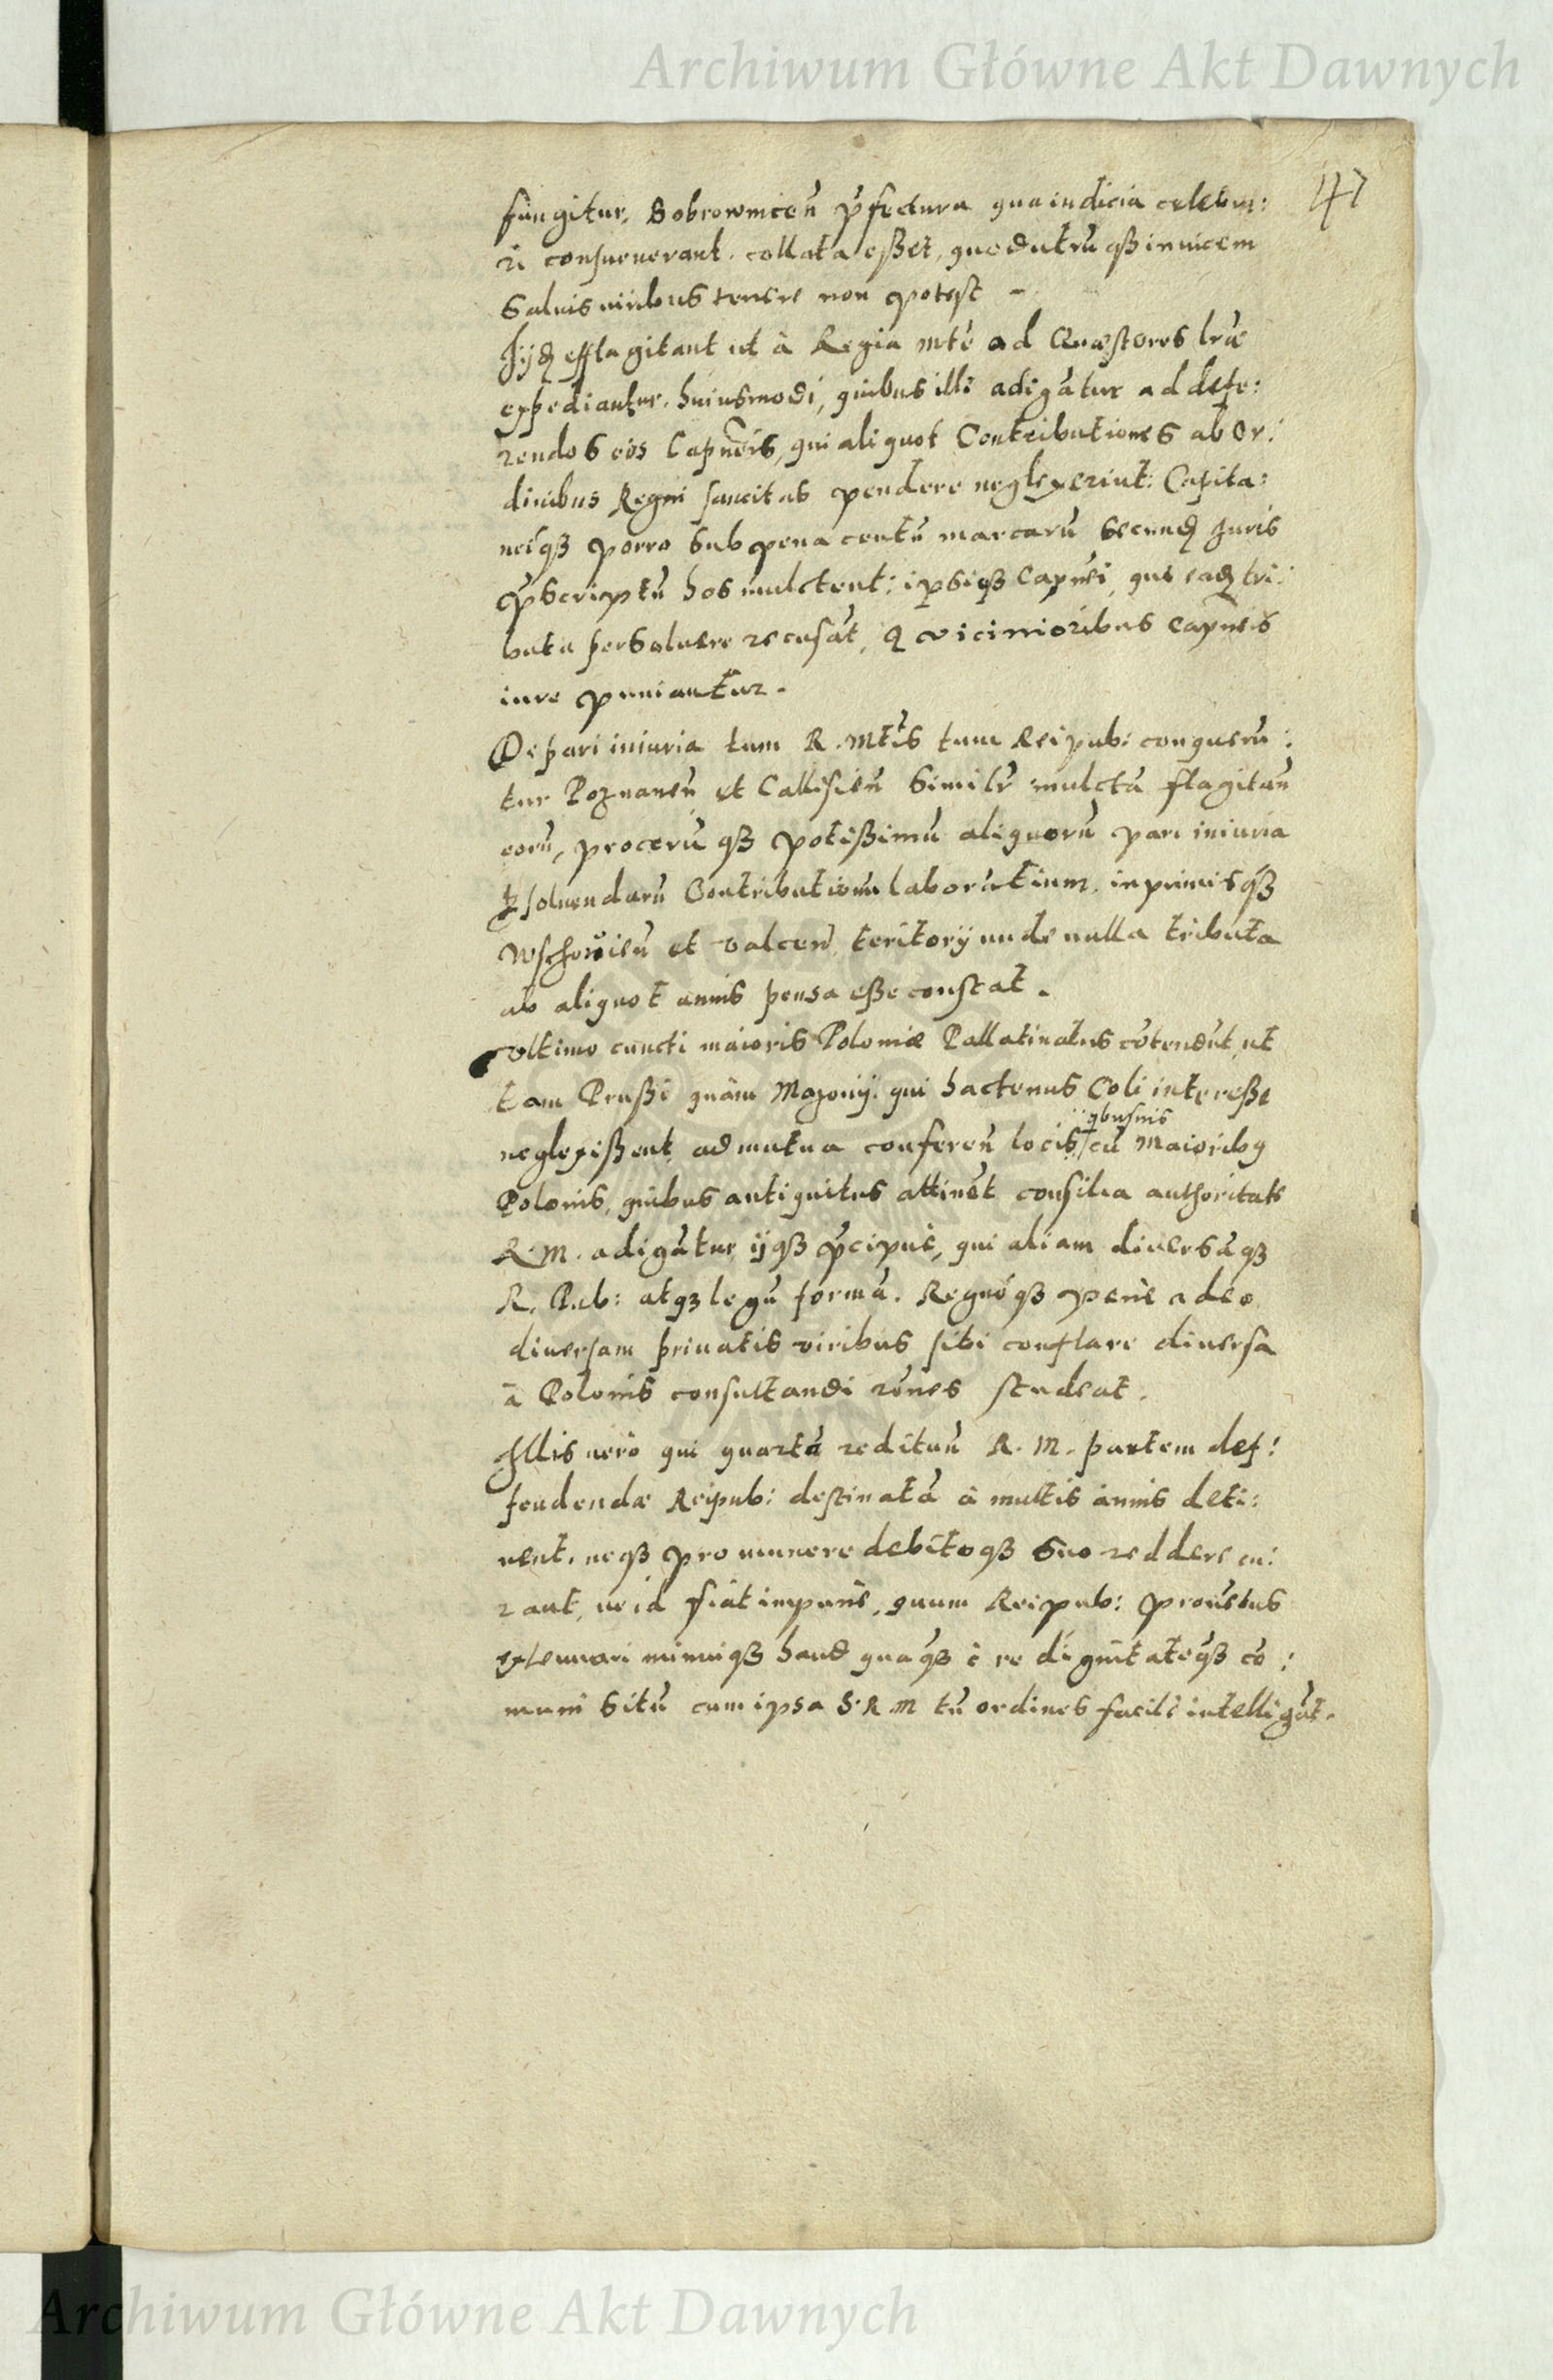 Archiwum Główne Akt Dawnych
147
fungitur, Bobrownicen̄ p̄fectura qua iudicia celebra:
ri consueuerant, collata eßet, quod utrūqß inuicem
Saluis iuribus tenere non potest –
Jijdē efflagitant ut à Regia mte ad Quæstores lræ
expediantur, huiusmodi, quibus illi adigātur ad defe:
rendos eos Capneis, qui aliquot Contributiones ab Or:
dinibus Regni sancitas pendere neglexerint: Capita:
neiqß porro Sub pena centū marcarū Secundū Juris
p̄scriptū hos mulctent: ipsiqß Capnei, qui eadē tri:
buta persoluere recusāt, a vicinioribus Capneis
iure puniantur.
De pari iniuria tam R. Mtis tum Reipub: conquerū:
tur Poznanen̄ et Callisien̄ Similr mulctā flagitan̄
eorū, procerūqß potißimū aliquorū pari iniuria
psoluendarū Contributionum laborātium, inprimisqß
Wschouien̄ et Valcen̄ teritorij unde nulla tributa
ab aliquot annis pensa eße constat.
Vltimo cuncti maioris Poloniæ Pallatinatus cōtendūt, ut
tam Prußi quàm Mazouij, qui hactenus Coli intereße
neglexißent, ad mutua conferen̄ locis cū Maiorib9
Polonis, quibus antiquitus attinēt consilia authoritate
R. M. adigātur, ijqß p̄cipue, qui aliam diuersāqß
R. Pub: atqß legū formā, Regnōqß pene adeo
diuersam priuatis viribus sibi conflare diuersa
à Polonis consultandi rōnes studeāt.
Illis uero qui quartā redituū R. M. partem def:
fendendæ Reipub: destinatā à multis annis deti:
nent, neqß pro munere debitoqß Suo reddere cu:
rant, ne id fiat impune, quum Reipub: prouētus
extenuari minuiqß haud quaqß è re dignitateqß cō:
muni Sitū cum ipsa S. R. M tū ordines facile intelligāt.
Archiwum Główne Akt Dawnych